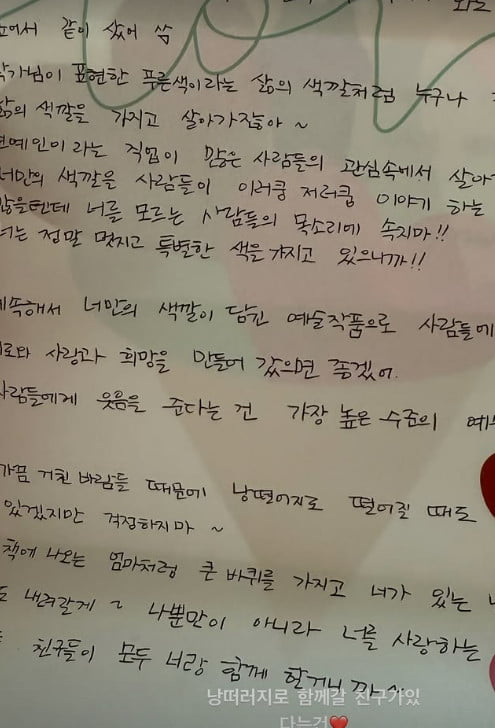 같이 샀어 씀
작가님이 표현한 푸른색이라는 삶의 색깔처럼 누구나
삶의 색깔을 가지고 살아가잖아 ~
연예인이라는 직업이 많은 사람들의 관심속에서 살아
너만의 색깔을 사람들이 이러쿵 저러쿵 이야기 하는
많을텐데 너를 모르는 사람들의 목소리에 속지마!!
너는 정말 멋지고 특별한 색을 가지고 있으니까!!
계속해서 너만의 색깔이 담긴 예술작품으로 사람들에
사랑과 희망을 만들어 갔으면 좋겠어.
사람들에게 웃음을 준다는 건 가장 높은 수준의 예
가끔 거친 바람들 때문에 낭떨어지로 떨어질 때도
있겠지만 걱정하지마 ~
책에 나오는 엄마처럼 큰 바퀴를 가지고 너가 있는
내려갈게 ~ 나뿐만이 아니라 너를 사랑하는
친구들이 모두 너랑 함께 할거니까~
낭떠러지로 함께갈 친구가있
다는건❤️